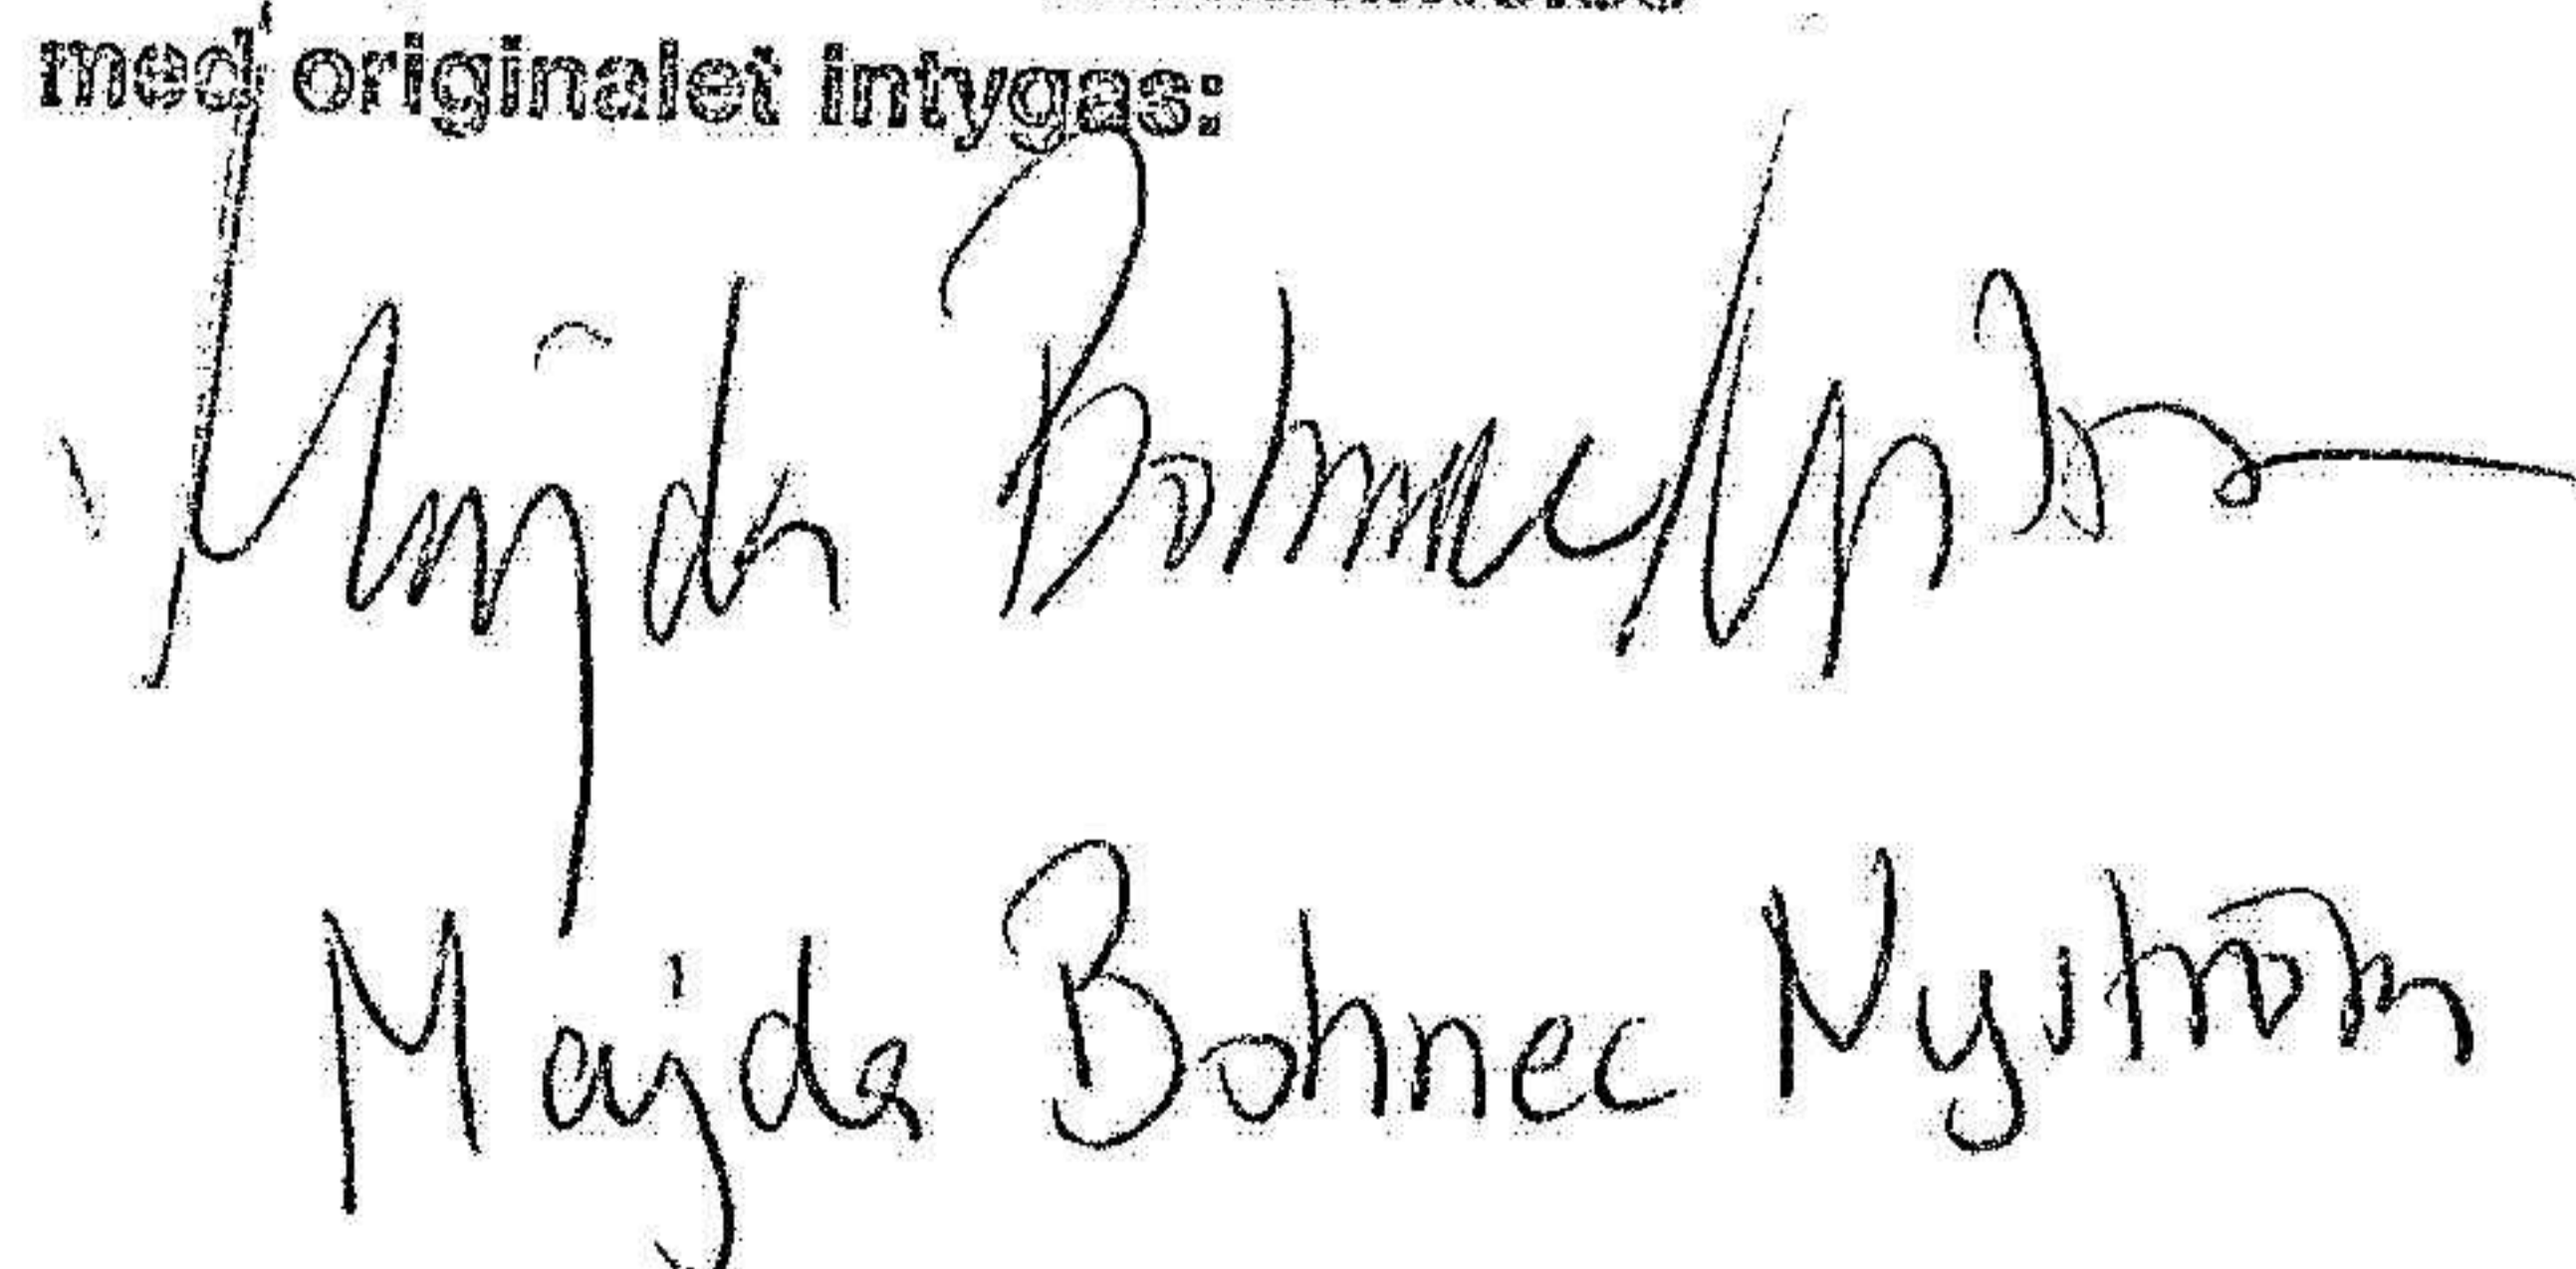 med originalet intygas:
Majda Bohnec Nyström
Majda Bohnec Nyström